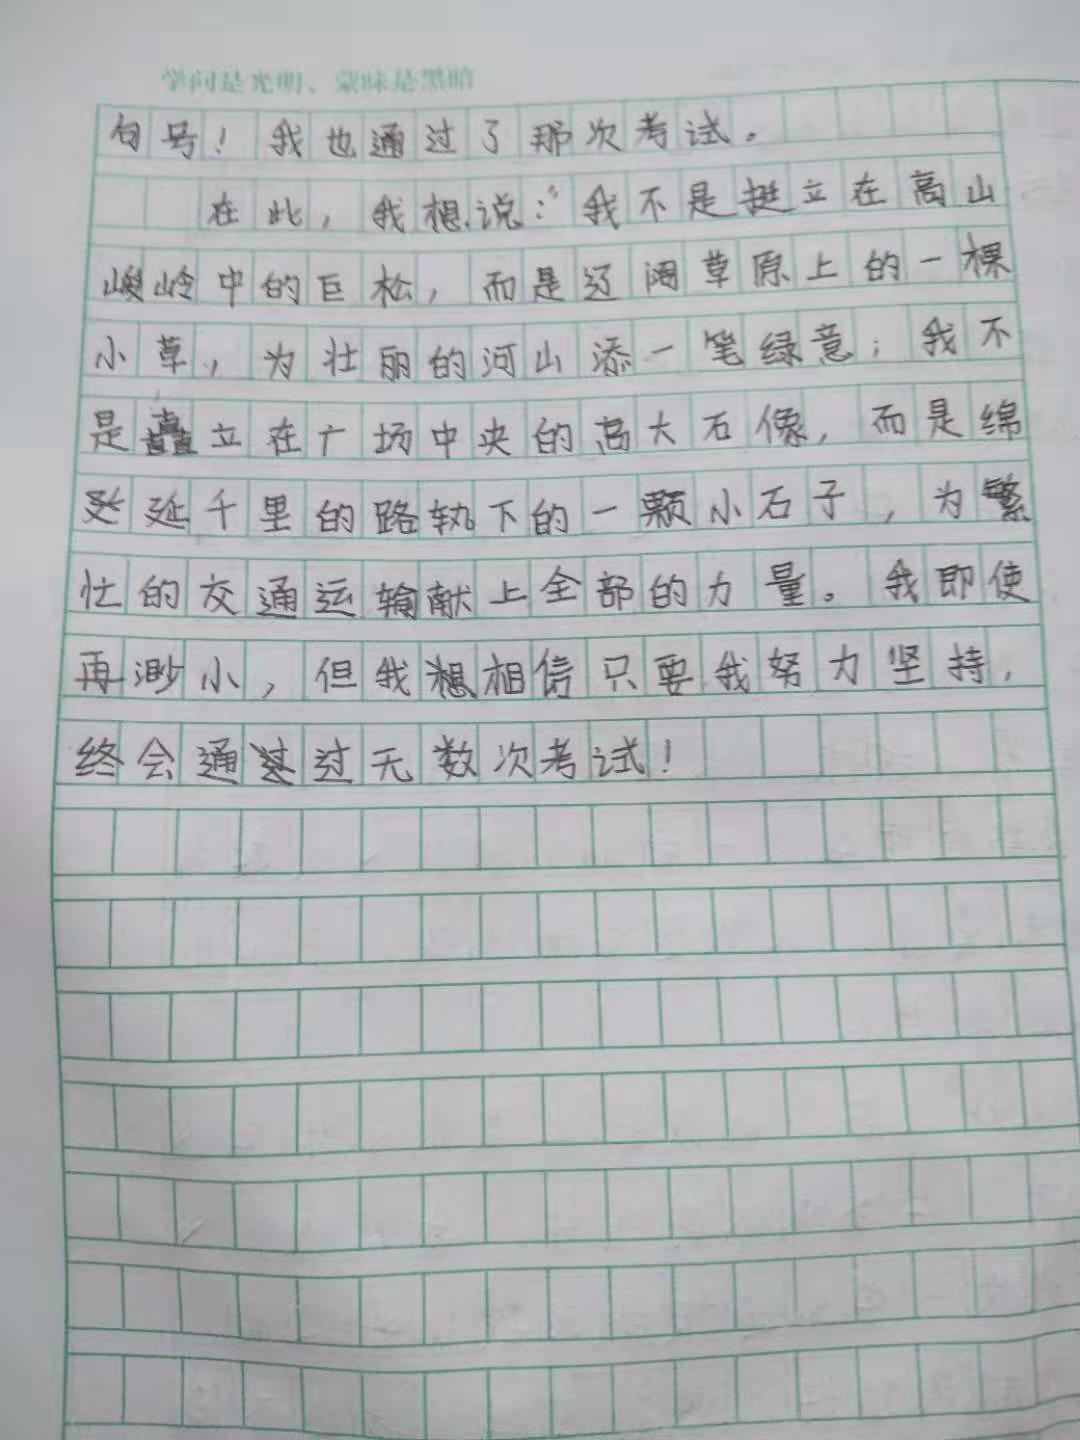 学问是光明、蒙昧是黑暗
句号！我也通过了那次考试。
在此，我想说：“我不是挺立在高山
峻岭中的巨松，而是辽阔草原上的一棵
小草，为壮丽的河山添一笔绿意；我不
是矗立在广场中央的高大石像，而是绵
延千里的路轨下的一颗小石子，为繁
忙的交通运输献上全部的力量。我即使
再渺小，但我想相信只要我努力坚持，
终会通过无数次考试！